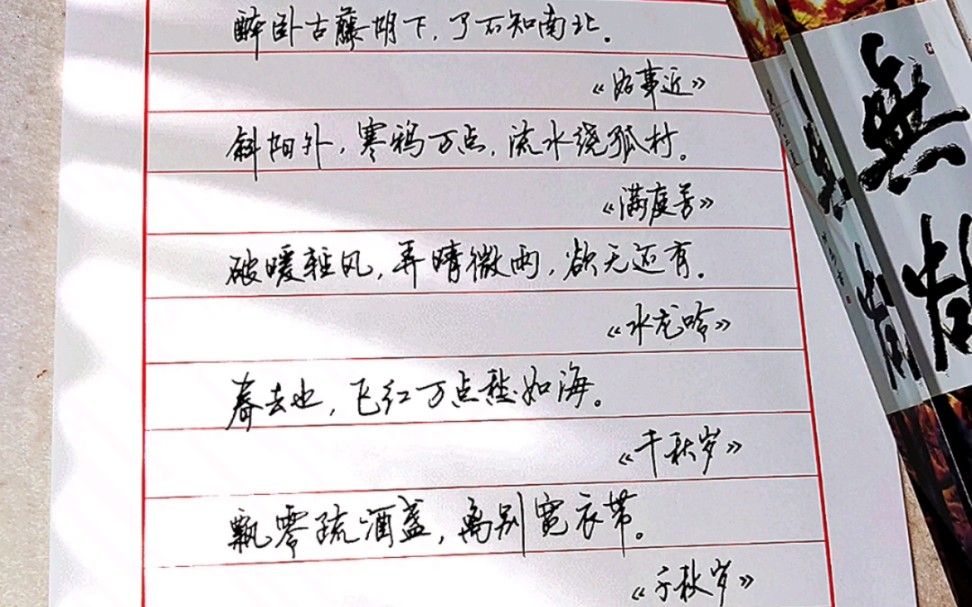 醉卧古藤阴下,了不知南北。
《好事近》
斜阳外,寒鸦万点,流水绕孤村。
《满庭芳》
破暖轻风,弄晴微雨,欲无还有。
《水龙吟》
春去也,飞红万点愁如海。
《千秋岁》
飘零疏酒盏,离别宽衣带。
《千秋岁》
無